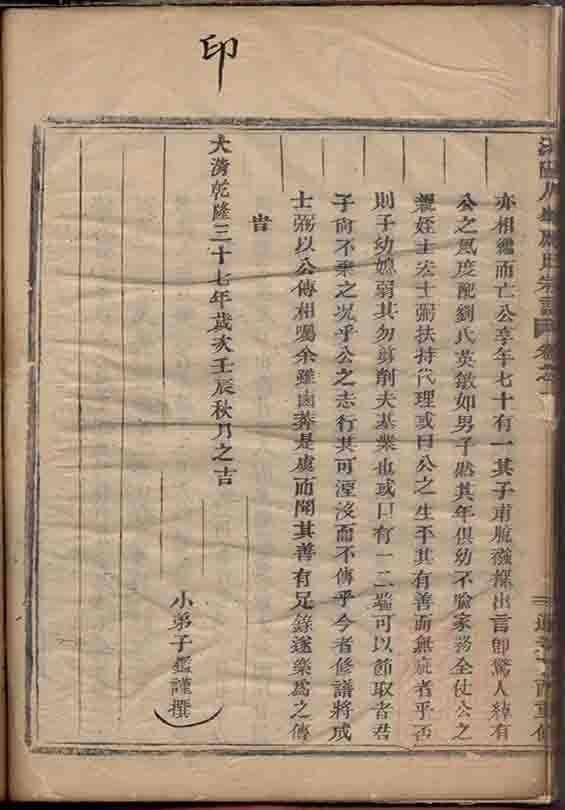 印
亦相繼而亡公享年七十有一其子甫脫襁褓出言即驚人綽有
公之風度配劉氏英敏如男子然其年俱幼不諳家務全仗公之
親姪士宏士弼扶持代理或曰公之生平其有善而無疵者乎否
則子幼媳弱其勿剪削夫基業也或曰有一二端可以節取者君
子尚不棄之况乎公之志行其可湮沒而不傳乎今者修譜將成
士弼以公傳相囑余雖鹵莽是虞而聞其善有足錄遂樂為之傳
旹
大清乾隆三十七年歲次壬辰秋月之吉
小弟子鑑謹撰